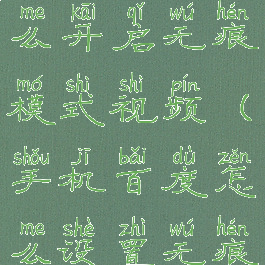 me kāi qǐ wú hén
么开启无痕
mó shì shì pín
模式视频（
shǒu jī bǎi dù zěn
手机百度怎
me shè zhì wú hén
么设置无痕